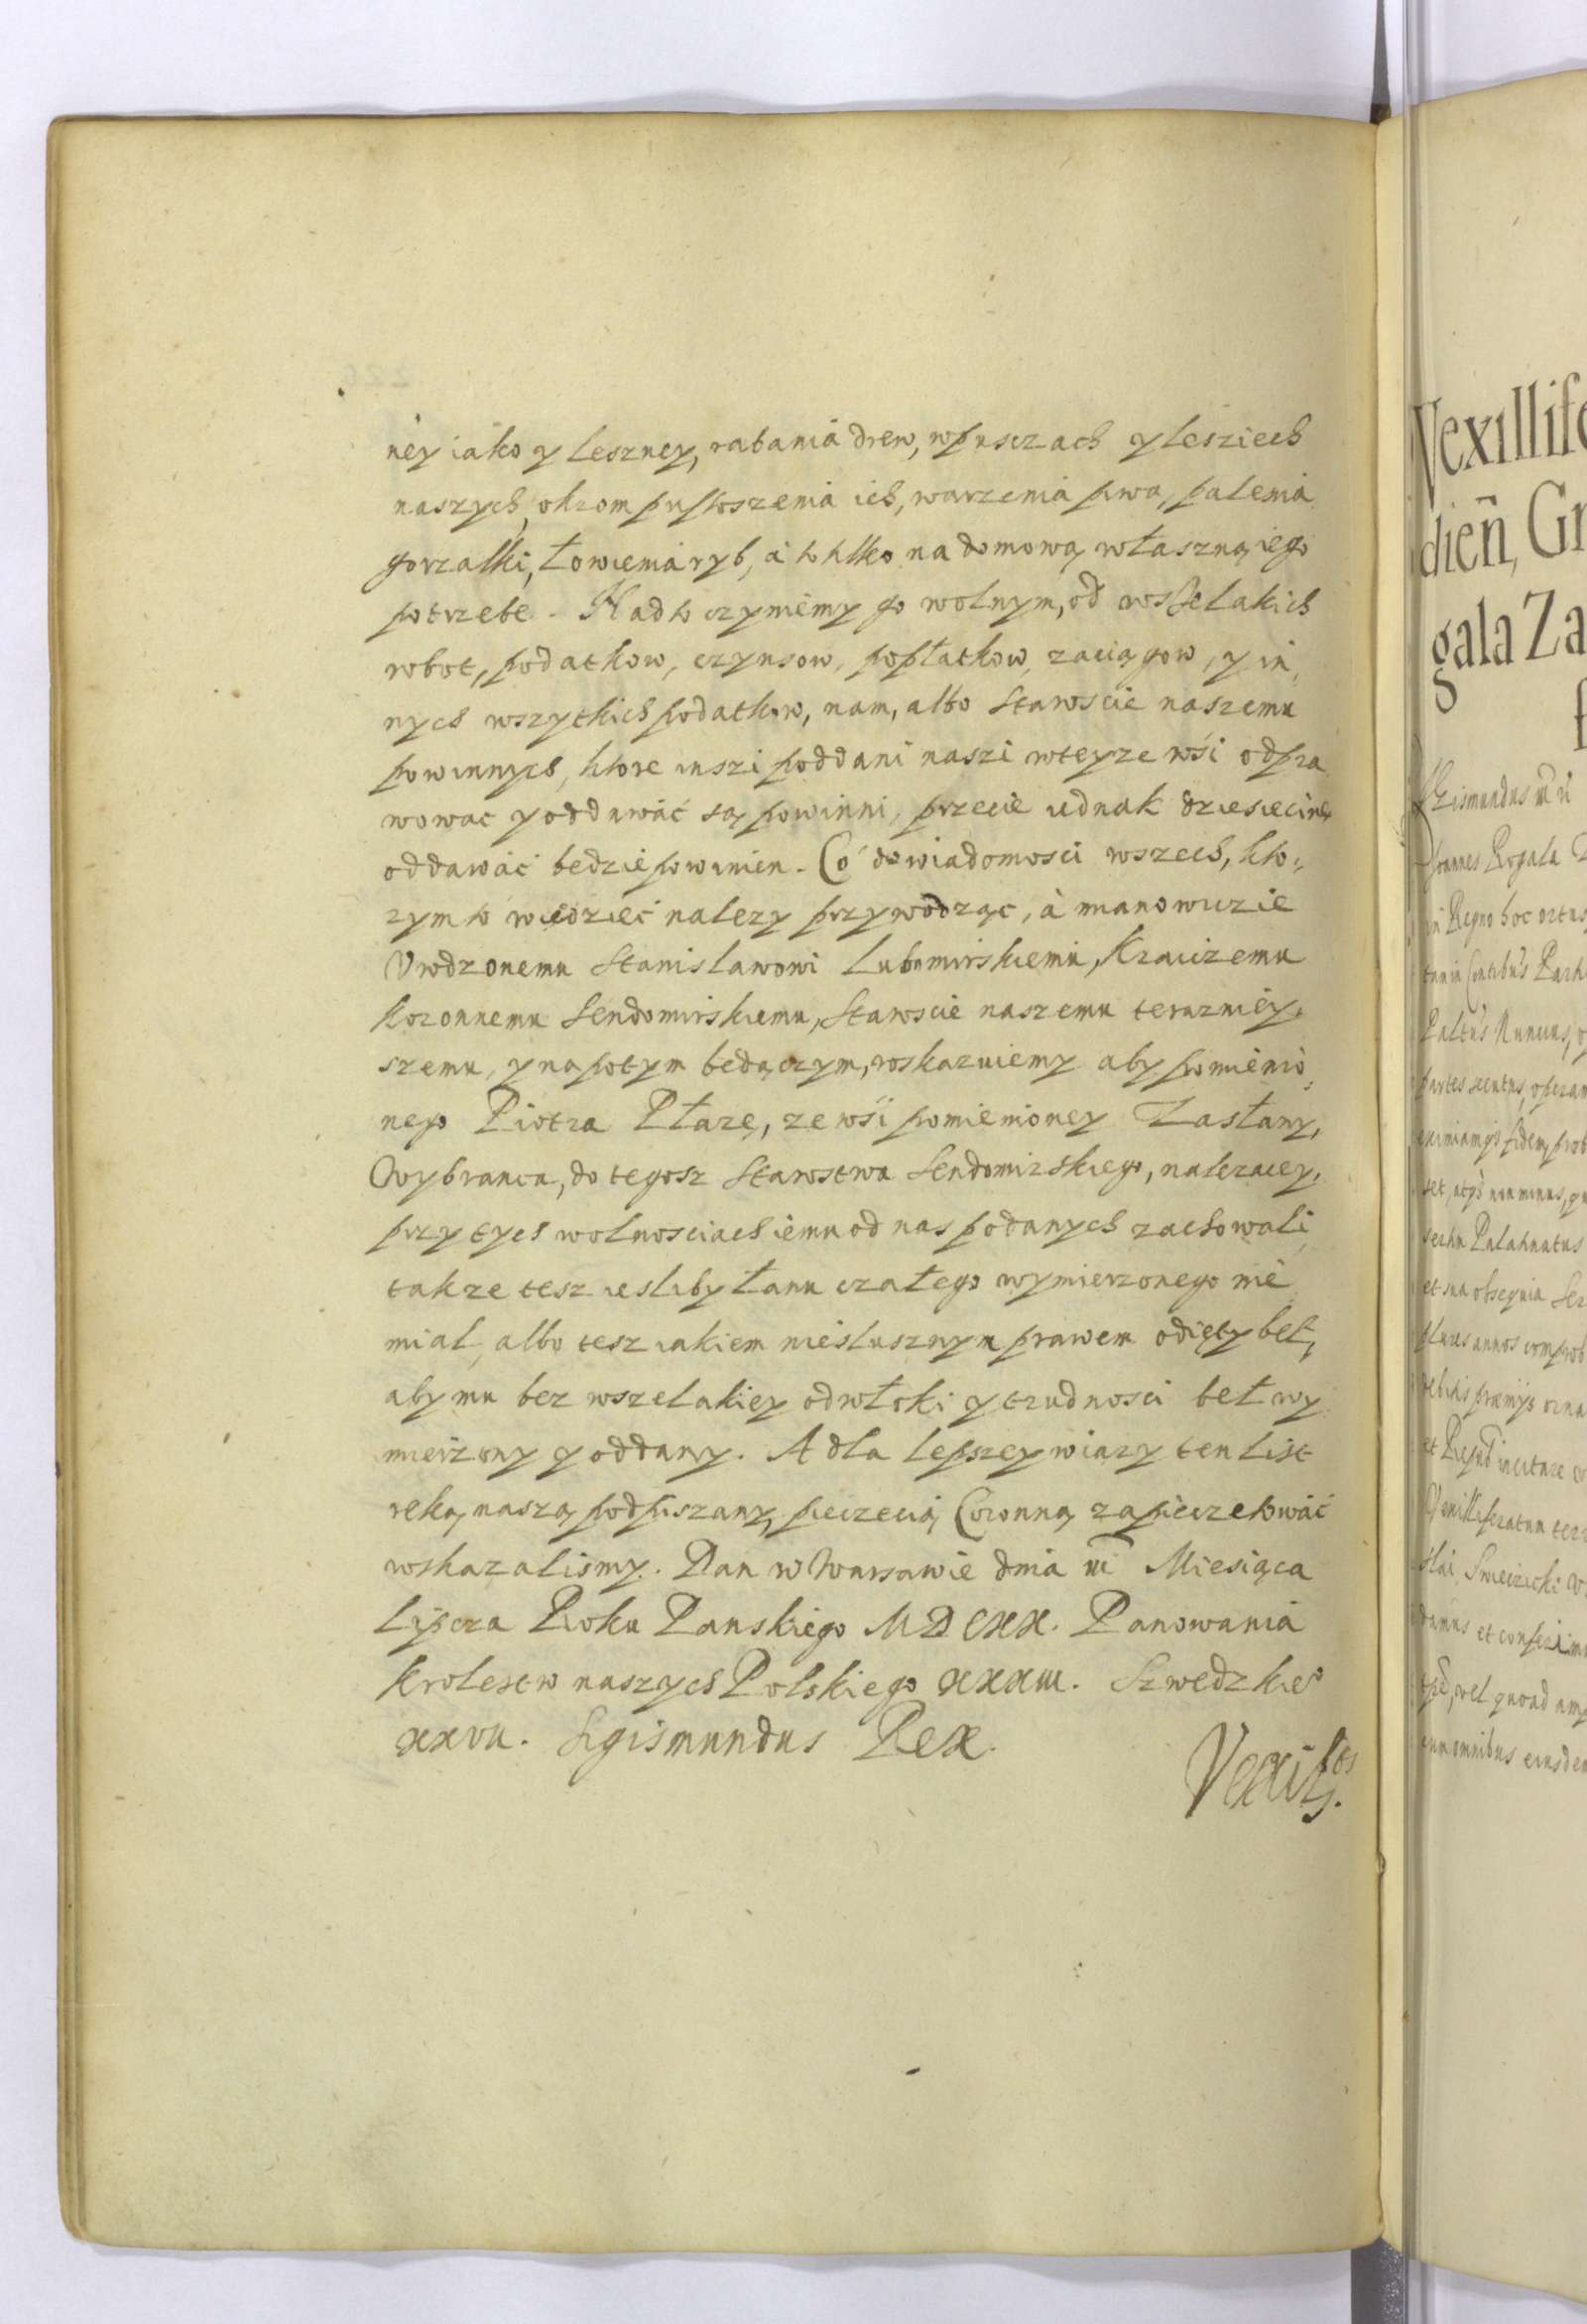 ney iako y leszney, rabania drew, w puszczach y lesziech
naszych, okrom pustoszenia ich, warzenia piwa, palenia
gorzalki, łowienia ryb, a to tylko na domową własznąiego
potrzebe. Nad to czyniemy go wolnym, od wsselakich
robot, podatkow, czynsow, popłatkow, zaciągow, y in,
nych wszytkich podatkow, nam, albo Staroscie naszemu
powinnych, ktore inszi poddani naszi w teyze wsi odpra
wowac y oddawać są powinni, przecie iednak dziesiecinę
oddawać bedzie powinien. Co do wiadomosci wszech, kto,
rym to wiedzieć nalezy przywodząc, à mianowicie
Vrodzonemu Stanislawowi Lubomirskiemu, Kraiczemu
Koronnemu Sendomirskiemu, Staroscie naszemu terazniey,
szemu, y napotym bedączym, roskazuiemy aby pomienio,
nego Piotra Płazę, ze wśi pomienioney Zasłany,
Wybranca, do tegosz Starostwa Sendomirskiego, nalezacey,
przy tych wolnosciach iemu od nas podanych zachowali
takze tesz iesliby łanu czałego wymierzonego nie
mial, albo tesz iakiem nieslusznym prawem odięty beł,
aby mu bez wszelakiey odwłoki y trudnosci beł wy
mierzony y oddany. A dla lepszey wiary ten list
reką naszą podpiszany, pieczecią Coronną zapieczętowác
wskazalismy. Dan w Warsawie dnia III Miesiąca
Lipcza Roku Panskiego MDCXX. Panowania
Krolestw naszych Polskiego XXXIII. Szwedzkieo
XXVII. Sigismundus Rex.
Vexillife
dień, Gr
gala Za
Joannes Rogala
in Regno hoc ortus
Palatus
et sua obsequia
plures annos comprob
eum omnibus eiusdem